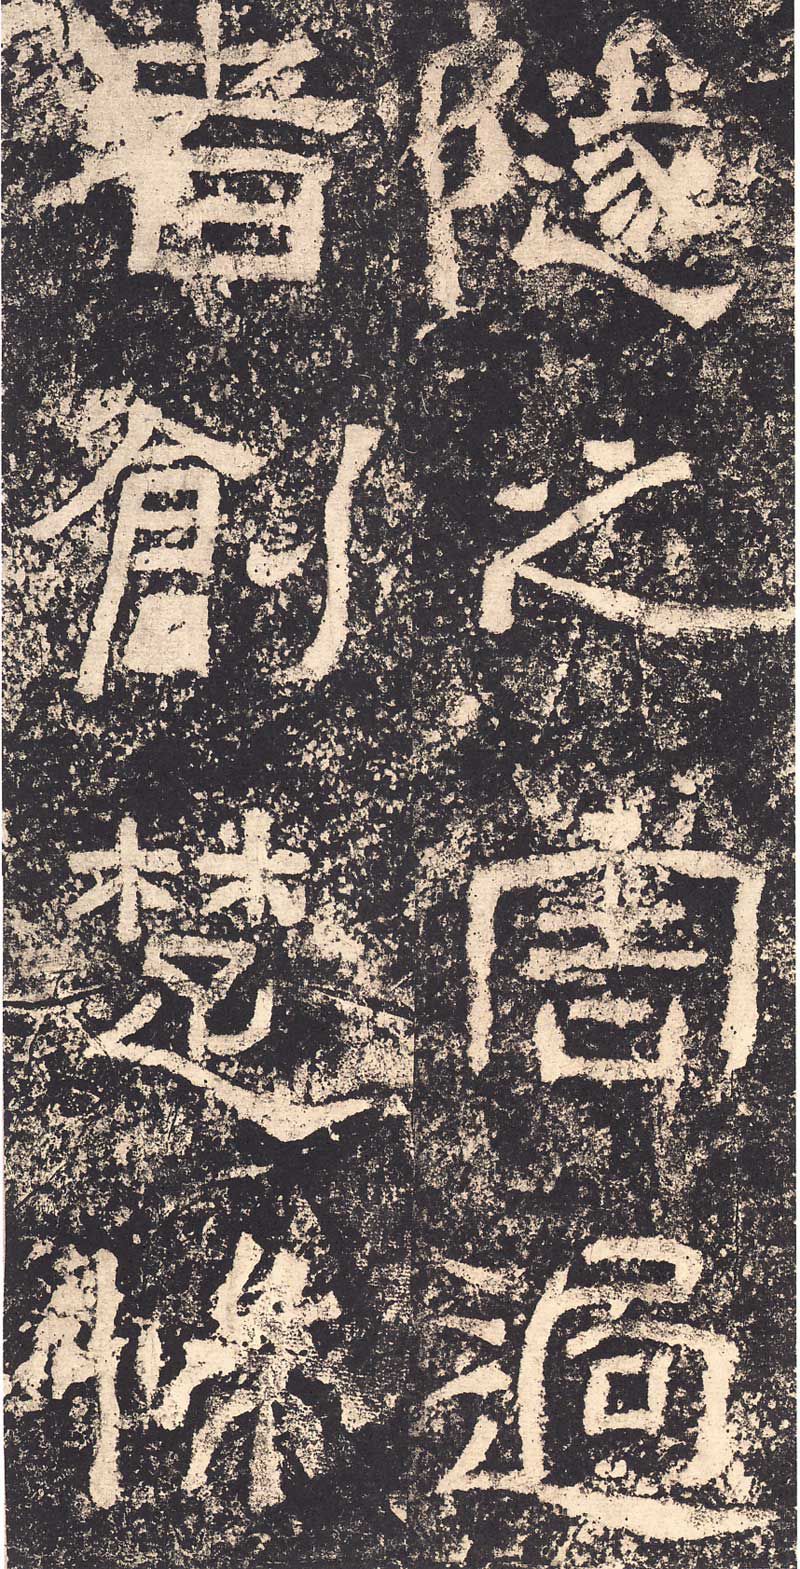 隧之害過
者創楚